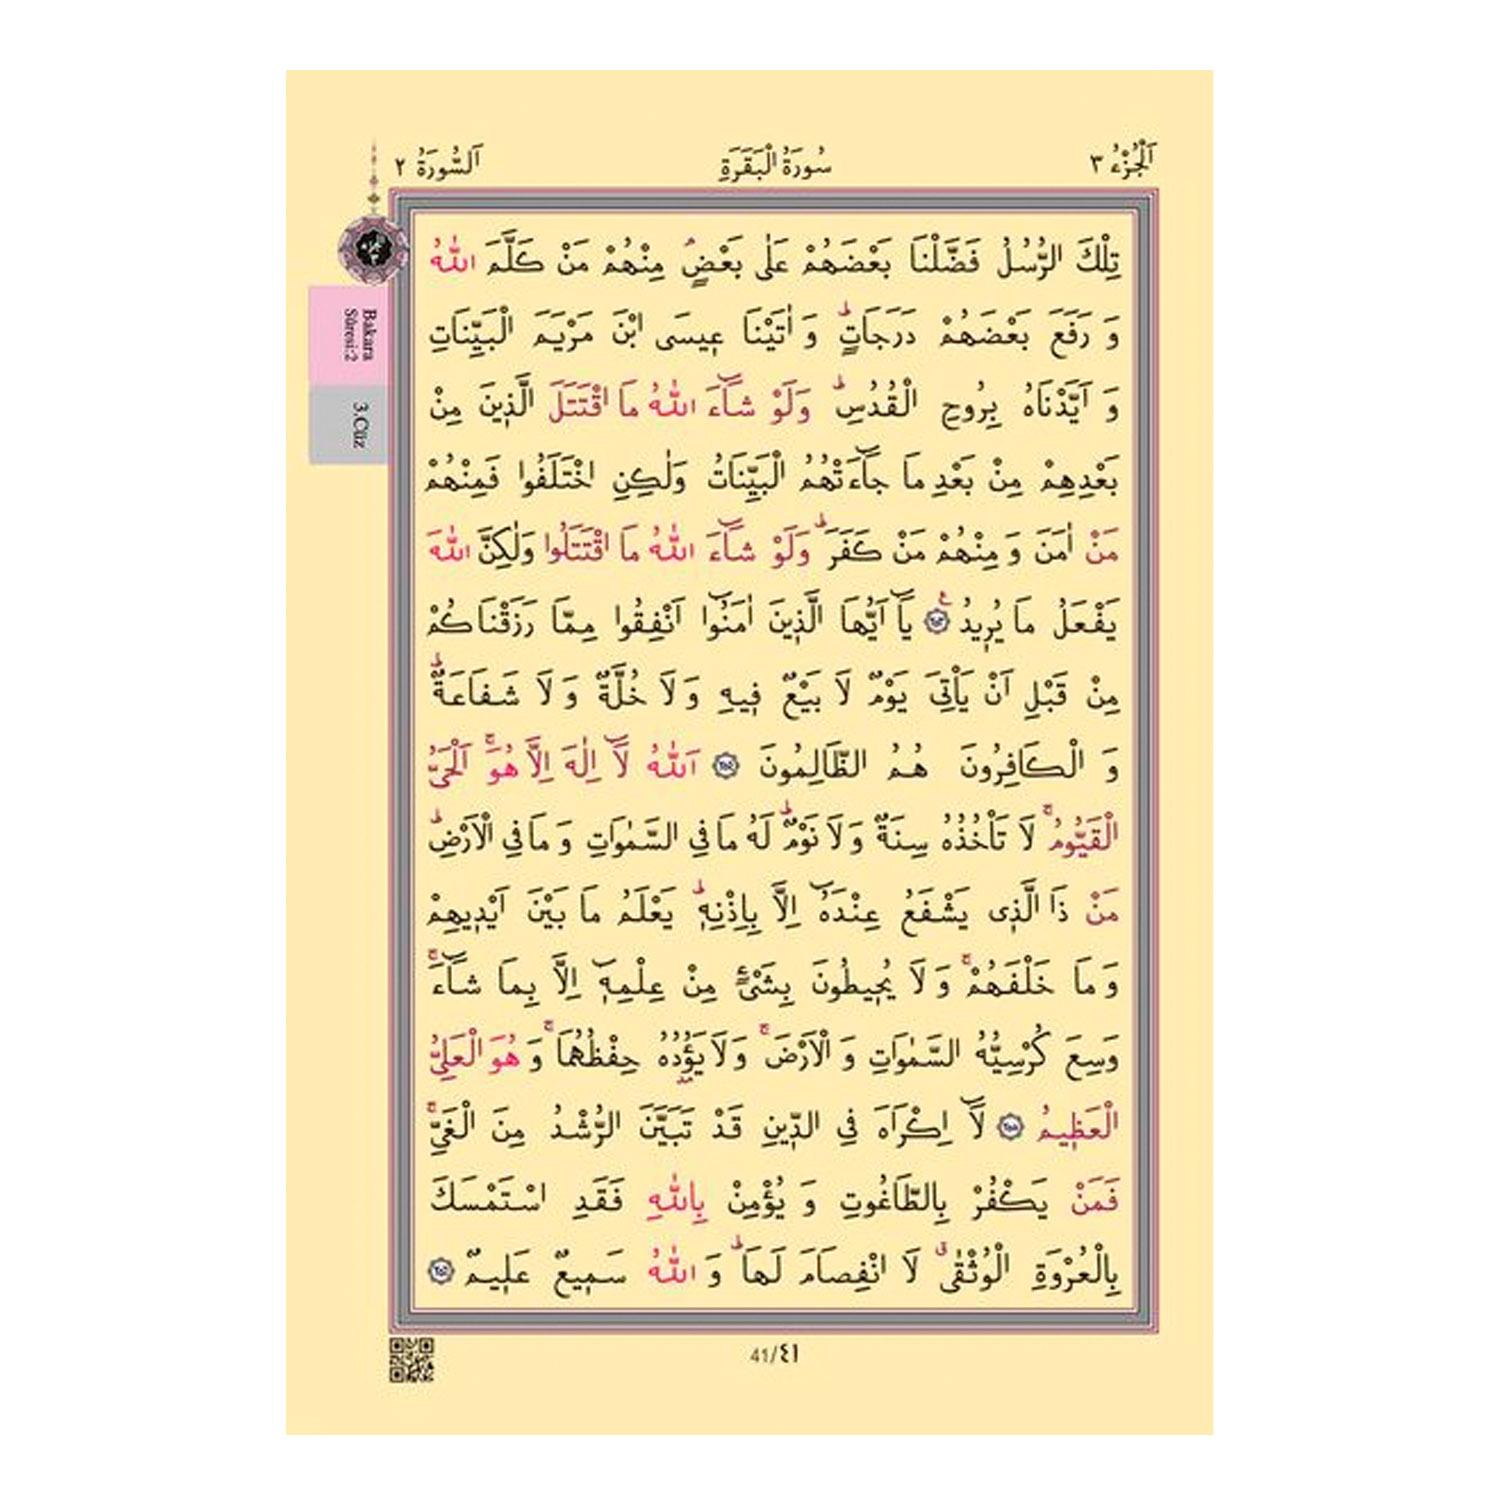 اَلْجُزْءُ ٣
سُورَةُ الْبَقَرَةِ
اَلسُّورَةُ ٢
تِلْكَ الرُّسُلُ فَضَّلْنَا بَعْضَهُمْ عَلٰى بَعْضٍۢ مِنْهُمْ مَنْ كَلَّمَ اللّٰهُ
وَ رَفَعَ بَعْضَهُمْ دَرَجَاتٍۜ وَ اٰتَيْنَا عٖيسَى ابْنَ مَرْيَمَ الْبَيِّنَاتِ
وَ اَيَّدْنَاهُ بِرُوحِ الْقُدُسِۜ وَلَوْ شَٓاءَ اللّٰهُ مَا اقْتَتَلَ الَّذٖينَ مِنْ
بَعْدِهِمْ مِنْ بَعْدِ مَا جَٓاءَتْهُمُ الْبَيِّنَاتُ وَلٰكِنِ اخْتَلَفُوا فَمِنْهُمْ
مَنْ اٰمَنَ وَ مِنْهُمْ مَنْ كَفَرَۜ وَلَوْ شَٓاءَ اللّٰهُ مَا اقْتَتَلُوا وَلٰكِنَّ اللّٰهَ
يَفْعَلُ مَا يُرٖيدُ ࣖ ٢٥٣ يَٓا اَيُّهَا الَّذٖينَ اٰمَنُٓوا اَنْفِقُوا مِمَّا رَزَقْنَاكُمْ
مِنْ قَبْلِ اَنْ يَأْتِىَ يَوْمٌ لَا بَيْعٌ فٖيهِ وَ لَا خُلَّةٌ وَ لَا شَفَاعَةٌۜ
وَ الْكَافِرُونَ هُمُ الظَّالِمُونَ ٢٥٤ اَللّٰهُ لَٓا اِلٰهَ اِلَّا هُوَۚ اَلْحَىُّ
الْقَيُّومُۚ لَا تَأْخُذُهُ سِنَةٌ وَ لَا نَوْمٌۜ لَهُ مَا فِى السَّمٰوَاتِ وَ مَا فِى الْاَرْضِۜ
مَنْ ذَا الَّذٖى يَشْفَعُ عِنْدَهُٓ اِلَّا بِاِذْنِهٖۜ يَعْلَمُ مَا بَيْنَ اَيْدٖيهِمْ
وَ مَا خَلْفَهُمْۚ وَ لَا يُحٖيطُونَ بِشَىْءٍ مِنْ عِلْمِهٖٓ اِلَّا بِمَا شَٓاءَۚ
وَسِعَ كُرْسِيُّهُ السَّمٰوَاتِ وَ الْاَرْضَۚ وَ لَا يَؤُ۫دُهُ حِفْظُهُمَاۚ وَ هُوَ الْعَلِىُّ
الْعَظٖيمُ ٢٥٥ لَٓا اِكْرَاهَ فِى الدّٖينِ قَدْ تَبَيَّنَ الرُّشْدُ مِنَ الْغَىِّۚ
فَمَنْ يَكْفُرْ بِالطَّاغُوتِ وَ يُؤْمِنْ بِاللّٰهِ فَقَدِ اسْتَمْسَكَ
بِالْعُرْوَةِ الْوُثْقٰىۗ لَا انْفِصَامَ لَهَاۜ وَ اللّٰهُ سَمٖيعٌ عَلٖيمٌ ٢٥٦
Bakara
Sûresi:2
3.Cüz
41/٤١